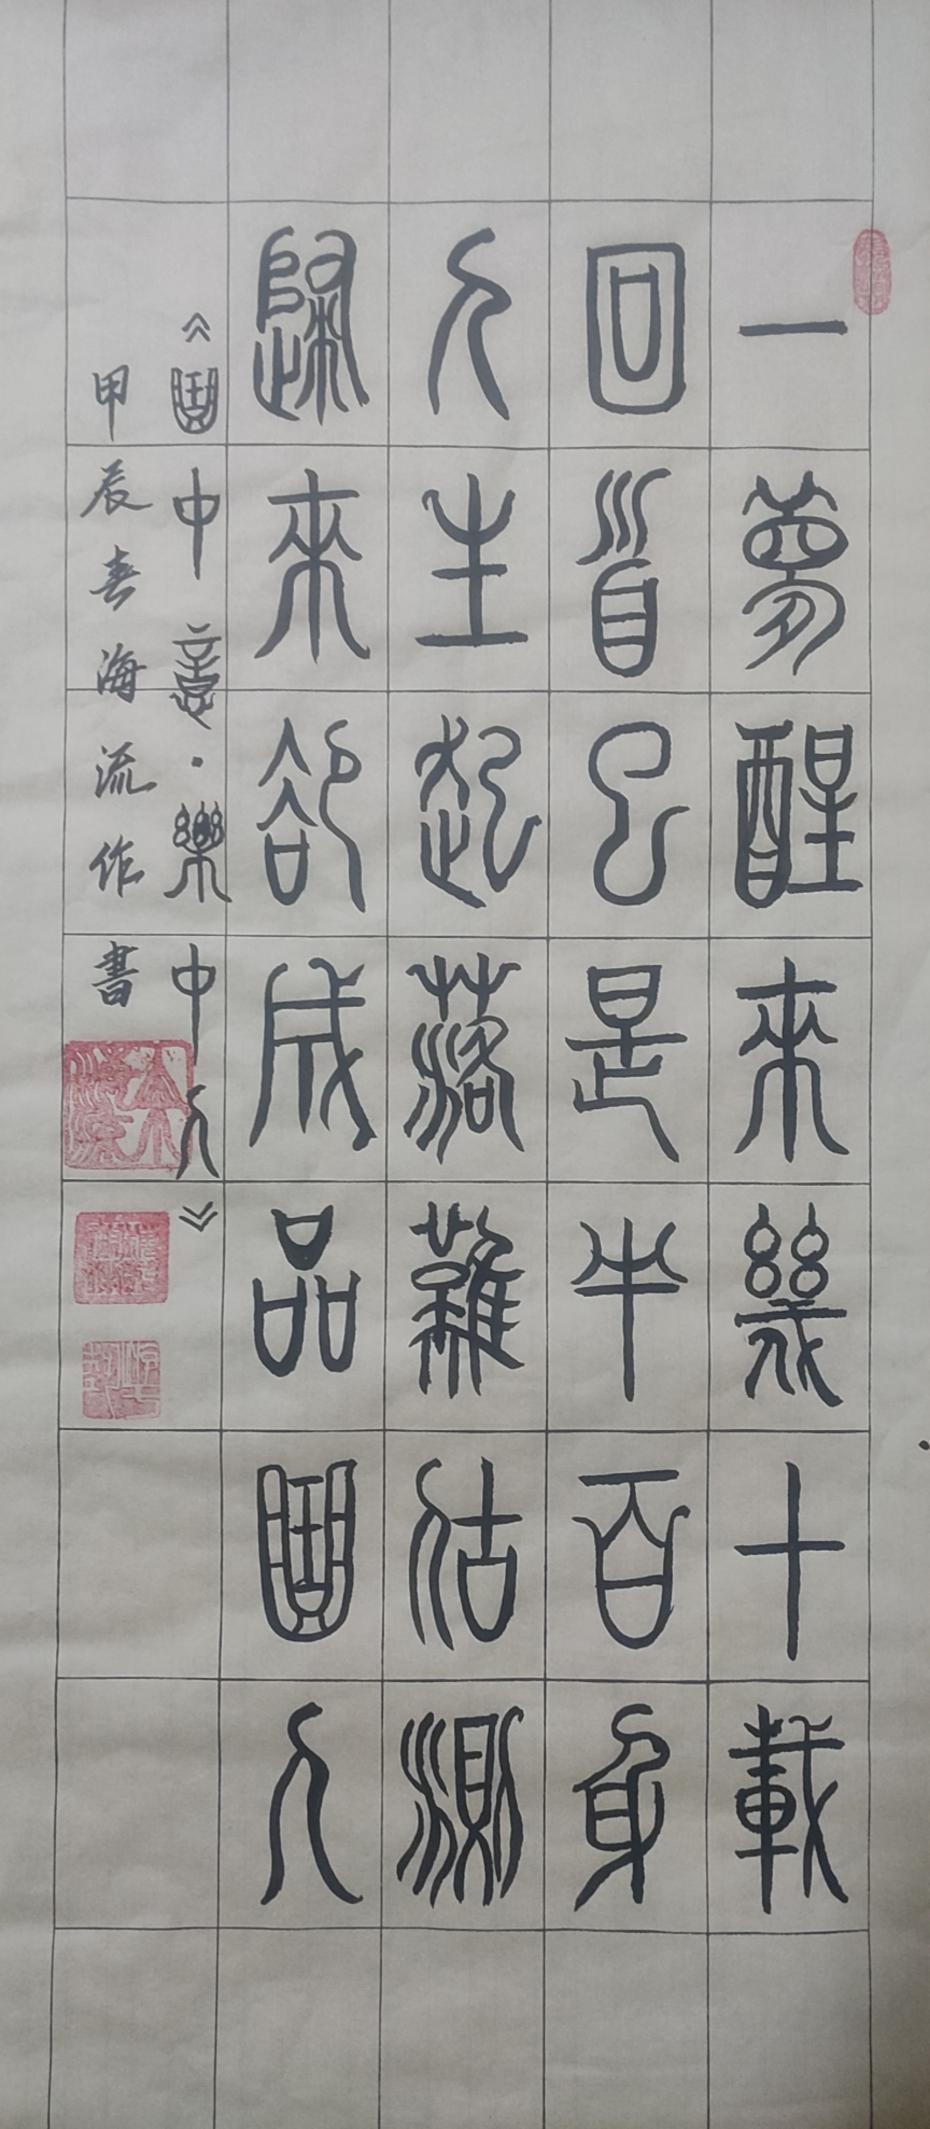 一夢醒來幾十載
回首已是半百身
人生起落難估測
歸來卻成品人
《中意·樂中人》
甲辰春海流作書